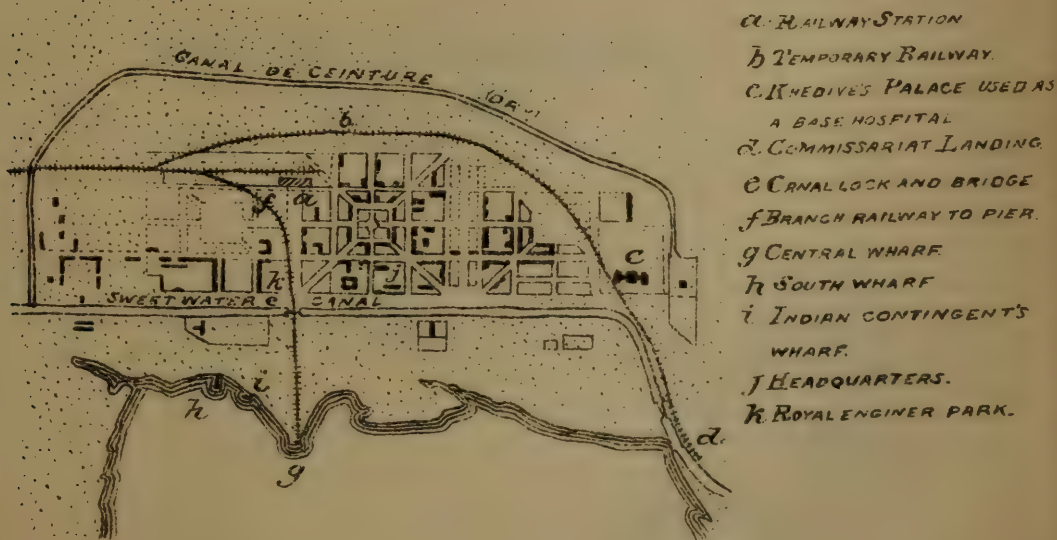 CANAL DE CEINTURE (DRY)
b
f
a
c
k
j
SWEET WATER e CANAL
h
i
g
d
a. RAILWAY STATION
b TEMPORARY RAILWAY.
c. KHEDIVE'S PALACE USED AS
A BASE HOSPITAL
d. COMMISSARIAT LANDING.
e CANAL LOCK AND BRIDGE
f BRANCH RAILWAY TO PIER.
g CENTRAL WHARF.
h SOUTH WHARF
i INDIAN CONTINGENT'S
WHARF.
J HEADQUARTERS.
k. ROYAL ENGINER PARK.